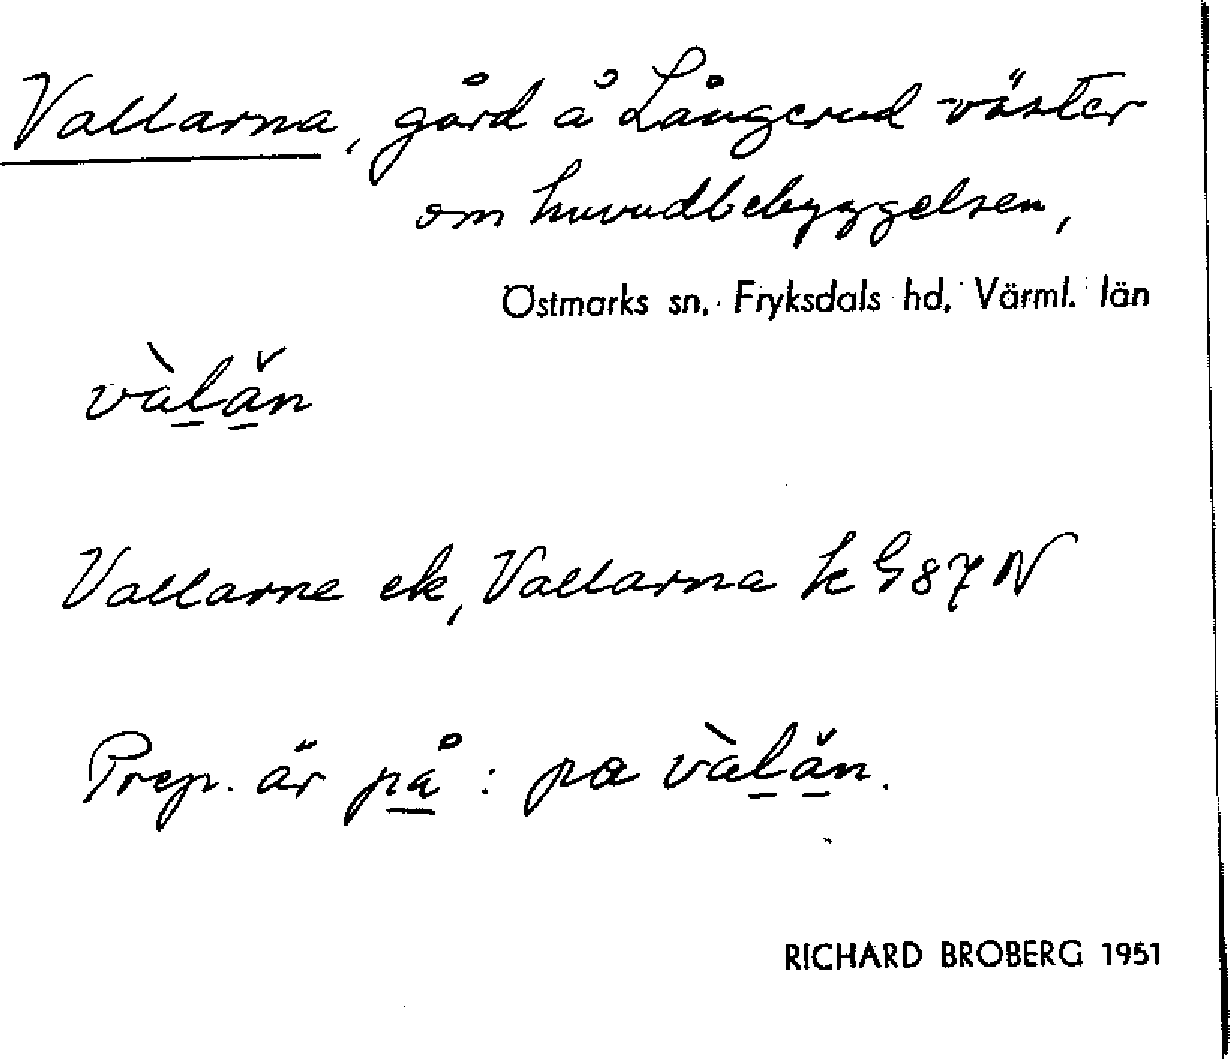 Vallarna, gård å Långerud väster
om huvudbebyggelsen,
Östmarks sn, Fryksdals hd, Värml. län
vàlăn
Vallarne ek, Vallarna k G 87 N
Prep. är på : pa vàlăn.
RICHARD BROBERG 1951